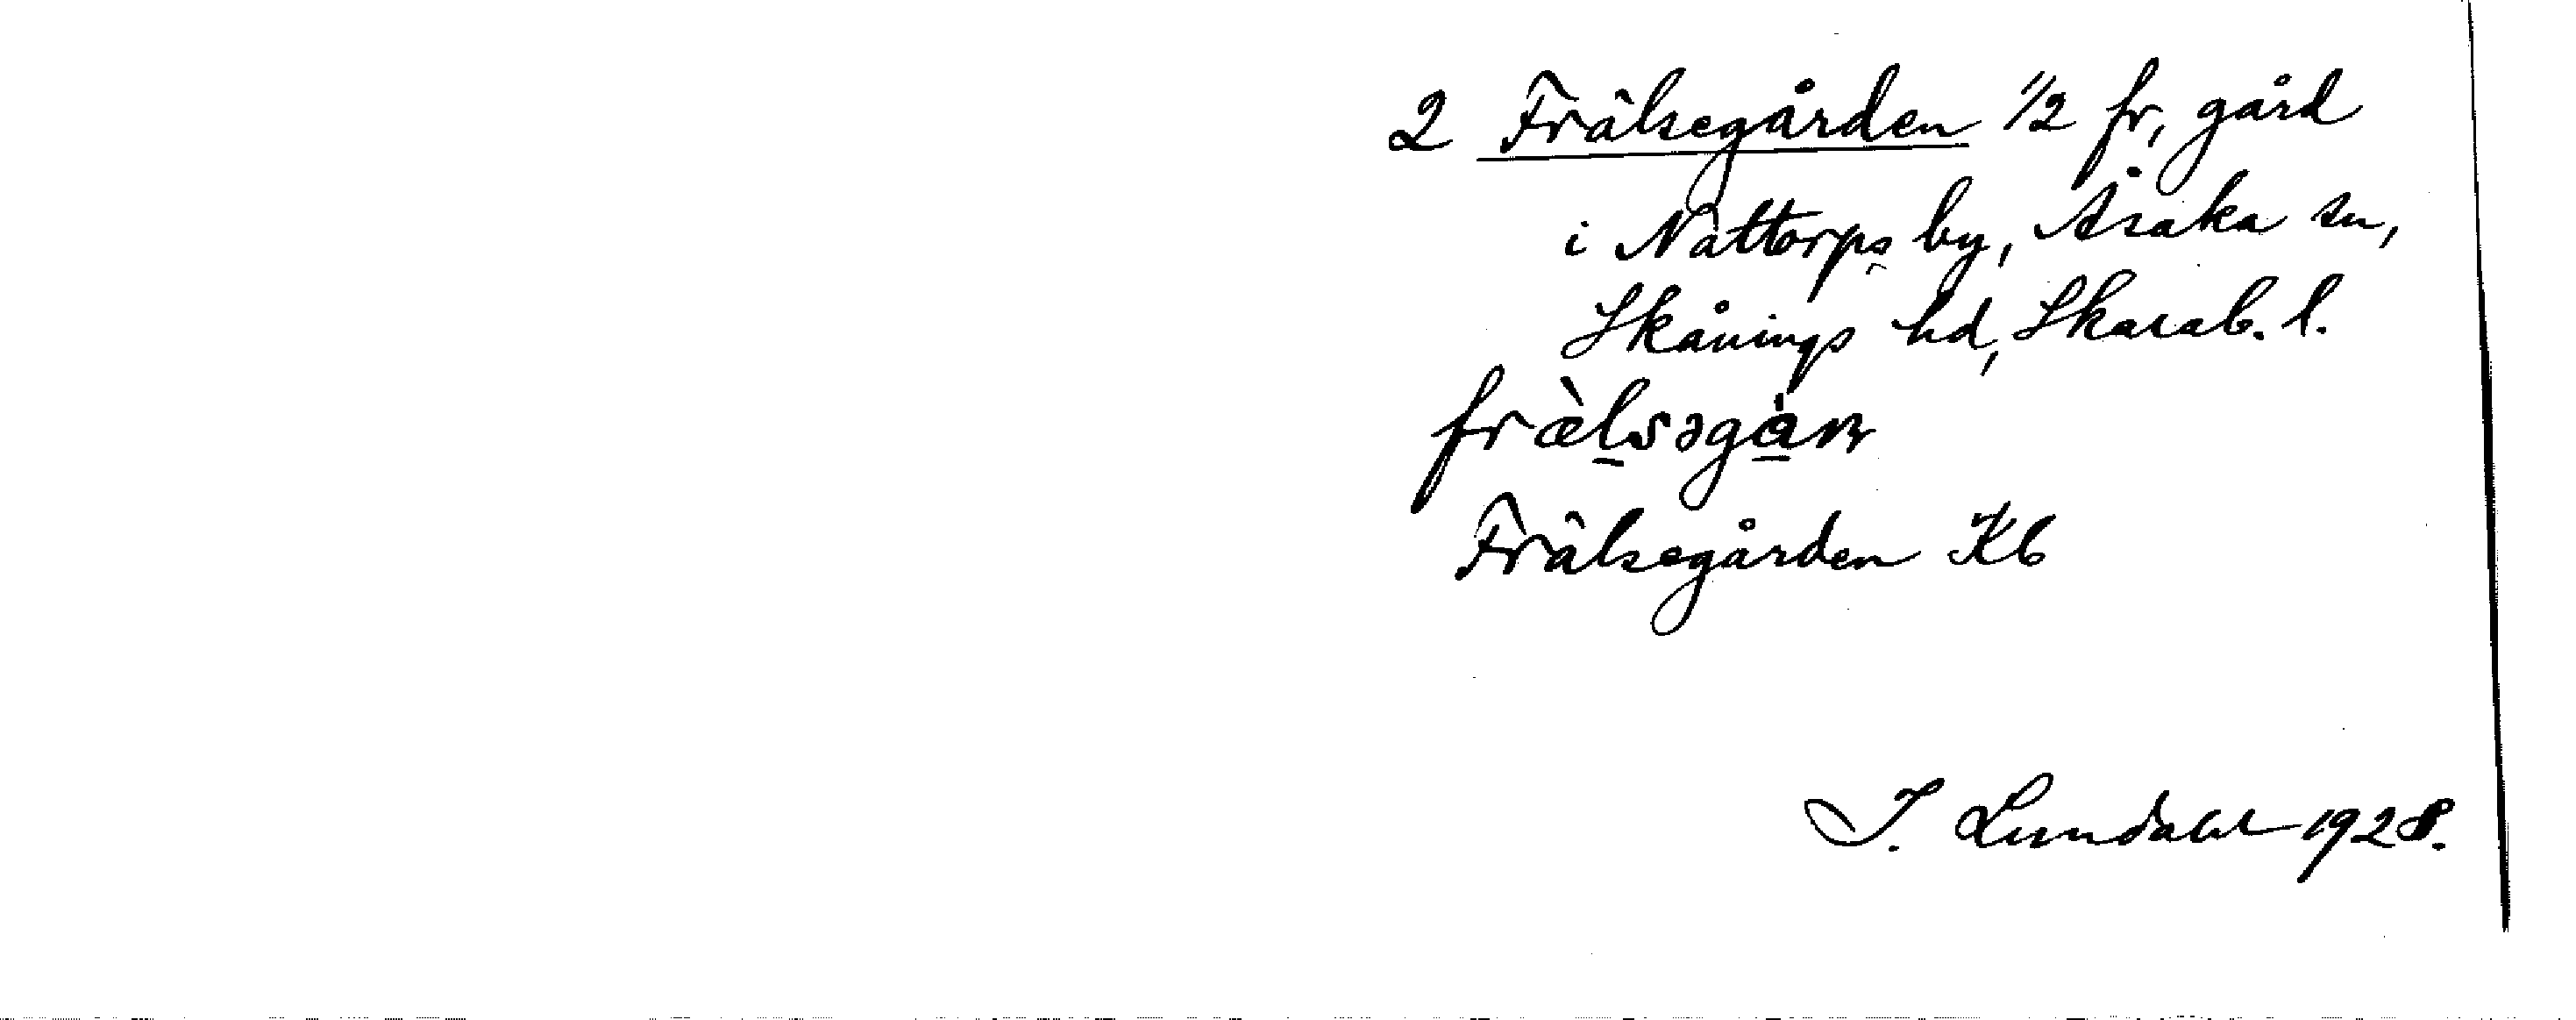 2 Frälsegården 1/2 fr, gård
i Nattorps by, Åsaka sn,
Skånings hd, Skarab. l.
Frälsegården Kb
I. Lundahl 1928.